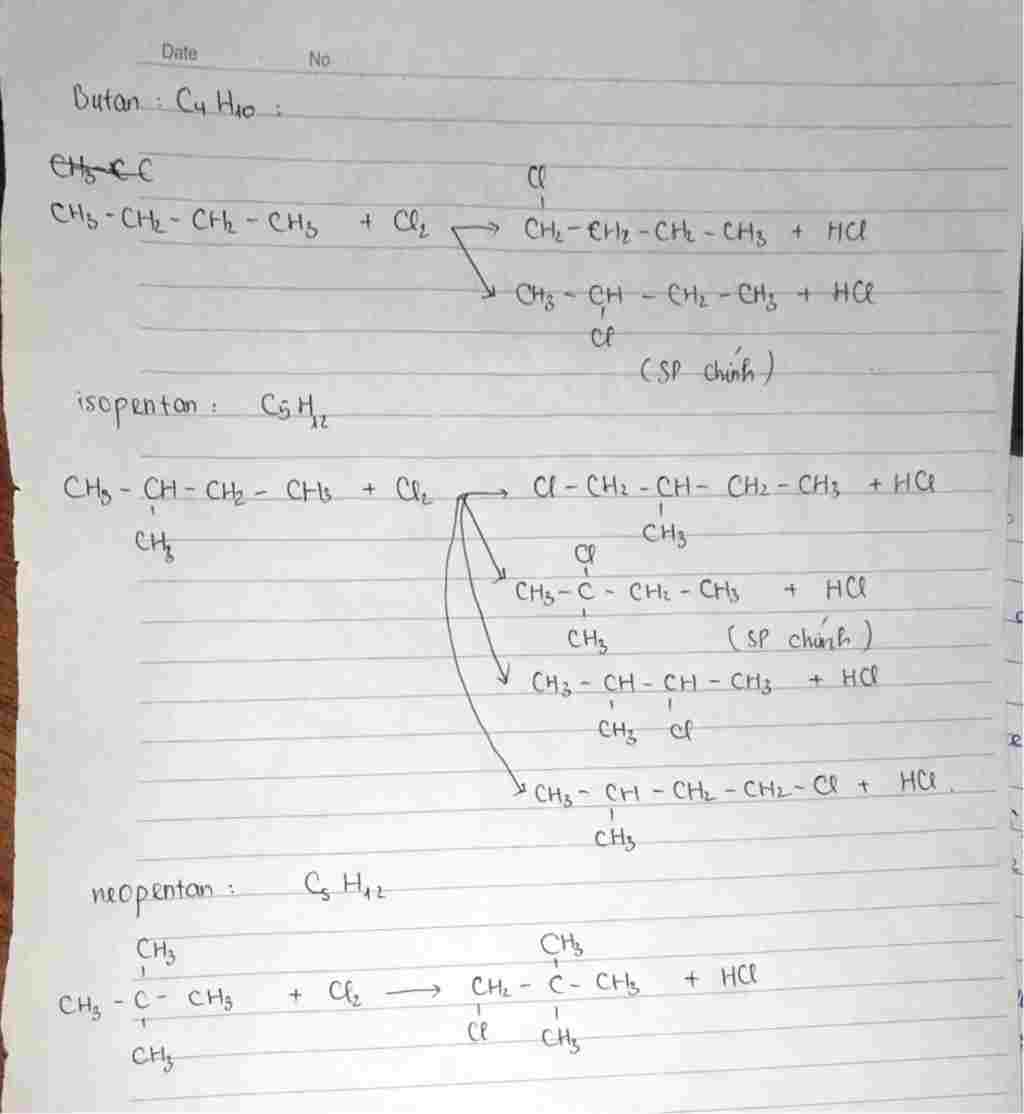 Date No
Butan : C4H10 :
CH3-C C
Cl
CH3-CH2-CH2-CH3 + Cl2 → CH2-CH2-CH2-CH3 + HCl
CH3-CH-CH2-CH3 + HCl
Cl
(SP chính)
isopentan : C5H12
CH3-CH-CH2-CH3 + Cl2 → Cl-CH2-CH-CH2-CH3 + HCl
CH3 CH3
Cl
CH3-C-CH2-CH3 + HCl
CH3 (SP chính)
CH3-CH-CH-CH3 + HCl
CH3 Cl
CH3-CH-CH2-CH2-Cl + HCl.
CH3
neopentan : C5H12
CH3 CH3
CH3-C-CH3 + Cl2 → CH2-C-CH3 + HCl
CH3 Cl CH3